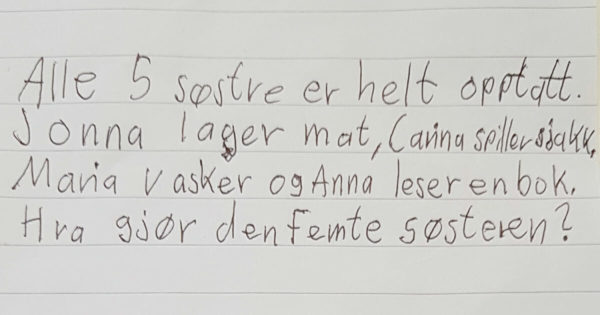 Alle 5 søstre er helt opptatt.
Jonna lager mat, Carina spiller sjakk,
Maria vasker og Anna leser en bok.
Hva gjør den femte søsteren?